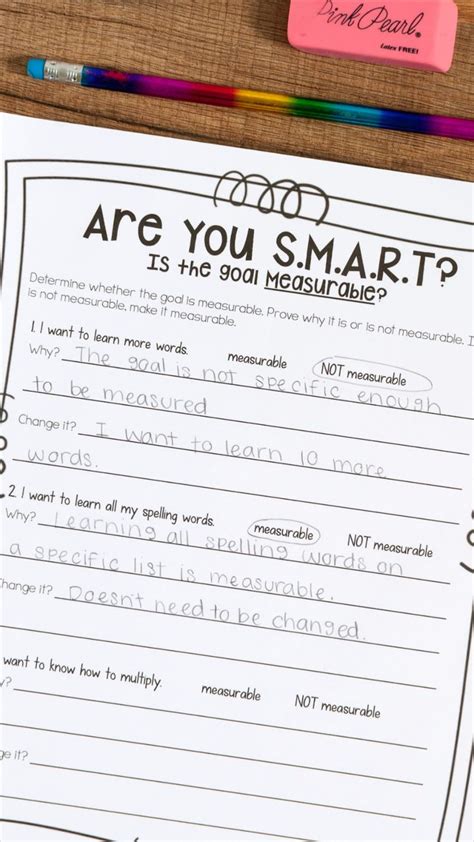 Pink Pearl®
Latex FREE!
Are You S.M.A.R.T?
Is the goal Measurable?
Determine whether the goal is measurable. Prove why it is or is not measurable. I
is not measurable, make it measurable.
1. I want to learn more words. measurable NOT measurable
Why? The goal is not specific enough
to be measured
Change it? I want to learn 10 more
words.
2. I want to learn all my spelling words. measurable NOT measurable
Why? Learning all spelling words on
a specific list is measurable.
hange it? Doesn't need to be changed.
want to know how to multiply. measurable NOT measurable
y?
ge it?